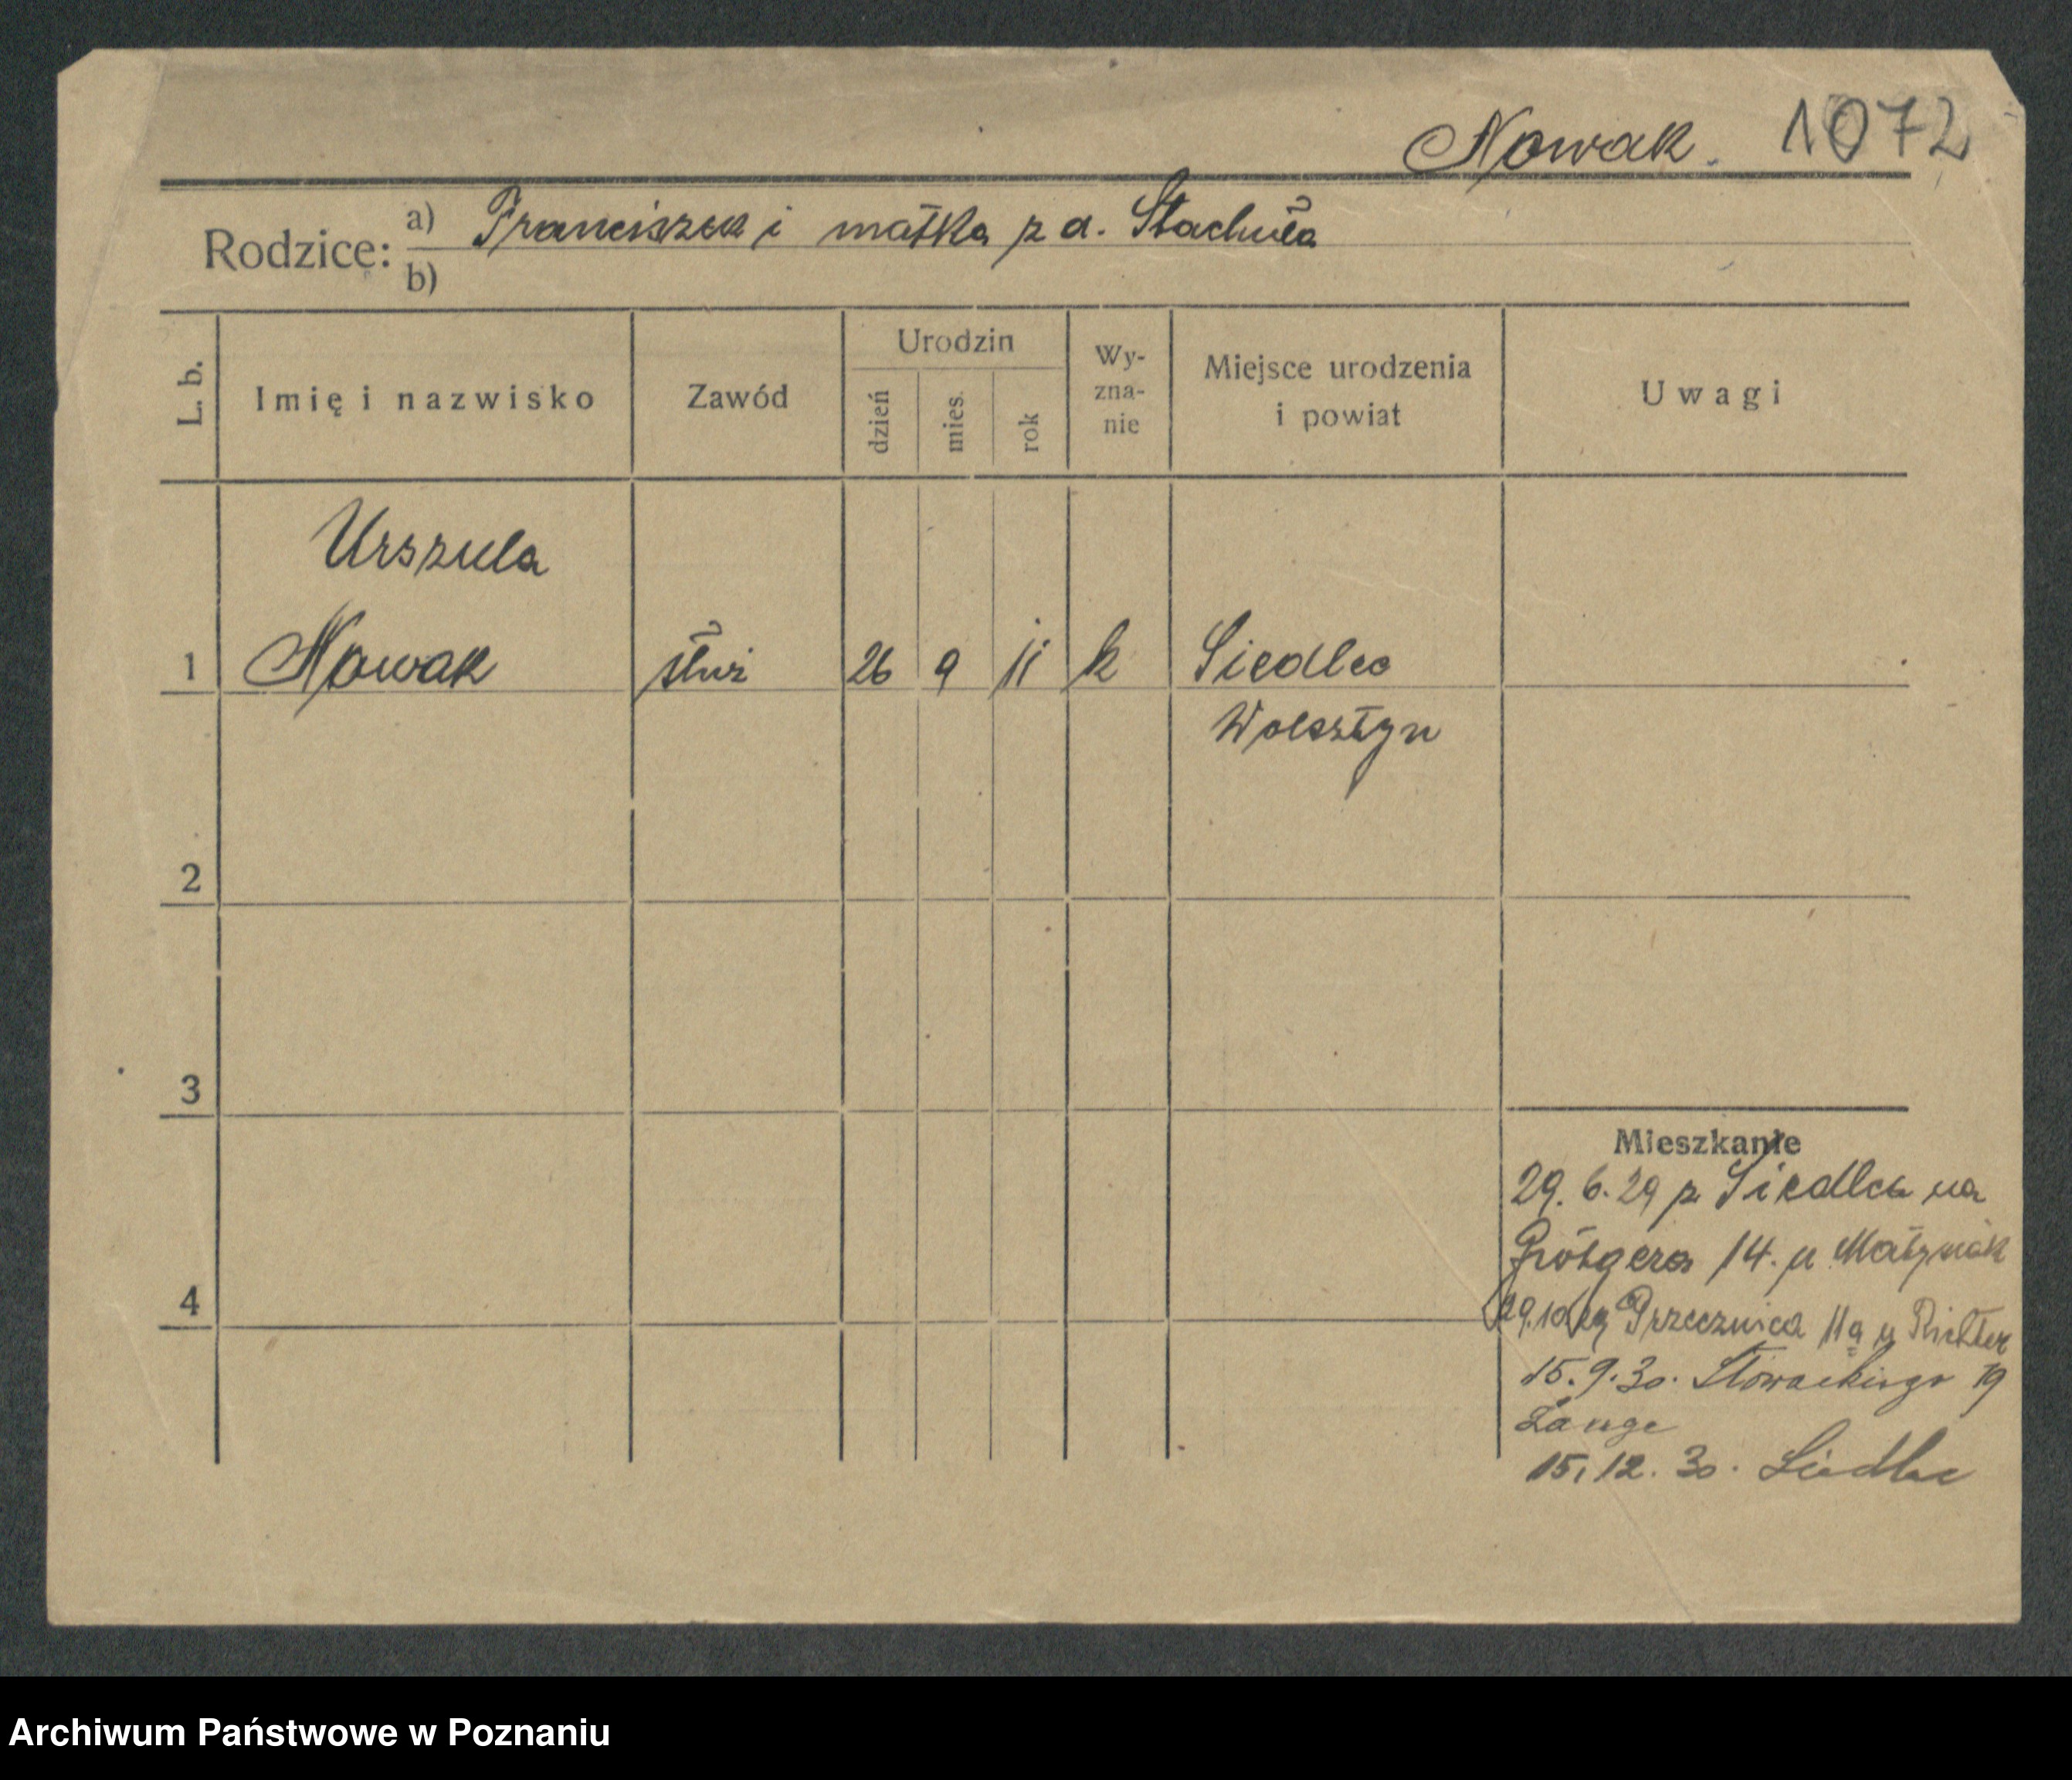 Nowak. 1072
Rodzice: a) Franciszek i matka z d. Stachuła
b)
L. b. Imię i nazwisko Zawód Urodzin dzień mies. rok Wy-zna-nie Miejsce urodzenia i powiat Uwagi
Urszula
1 Nowak służ 26 9 11 k Siedlec
Wolsztyn
2
3
Mieszkanie
29. 6. 29 z Siedlca na
Grótgera 14. u
4
29.10.29 Przecznica 11a u Richter
15. 9. 30. Słowackiego 19
Lange
15. 12. 30. Siedlec
Archiwum Państwowe w Poznaniu